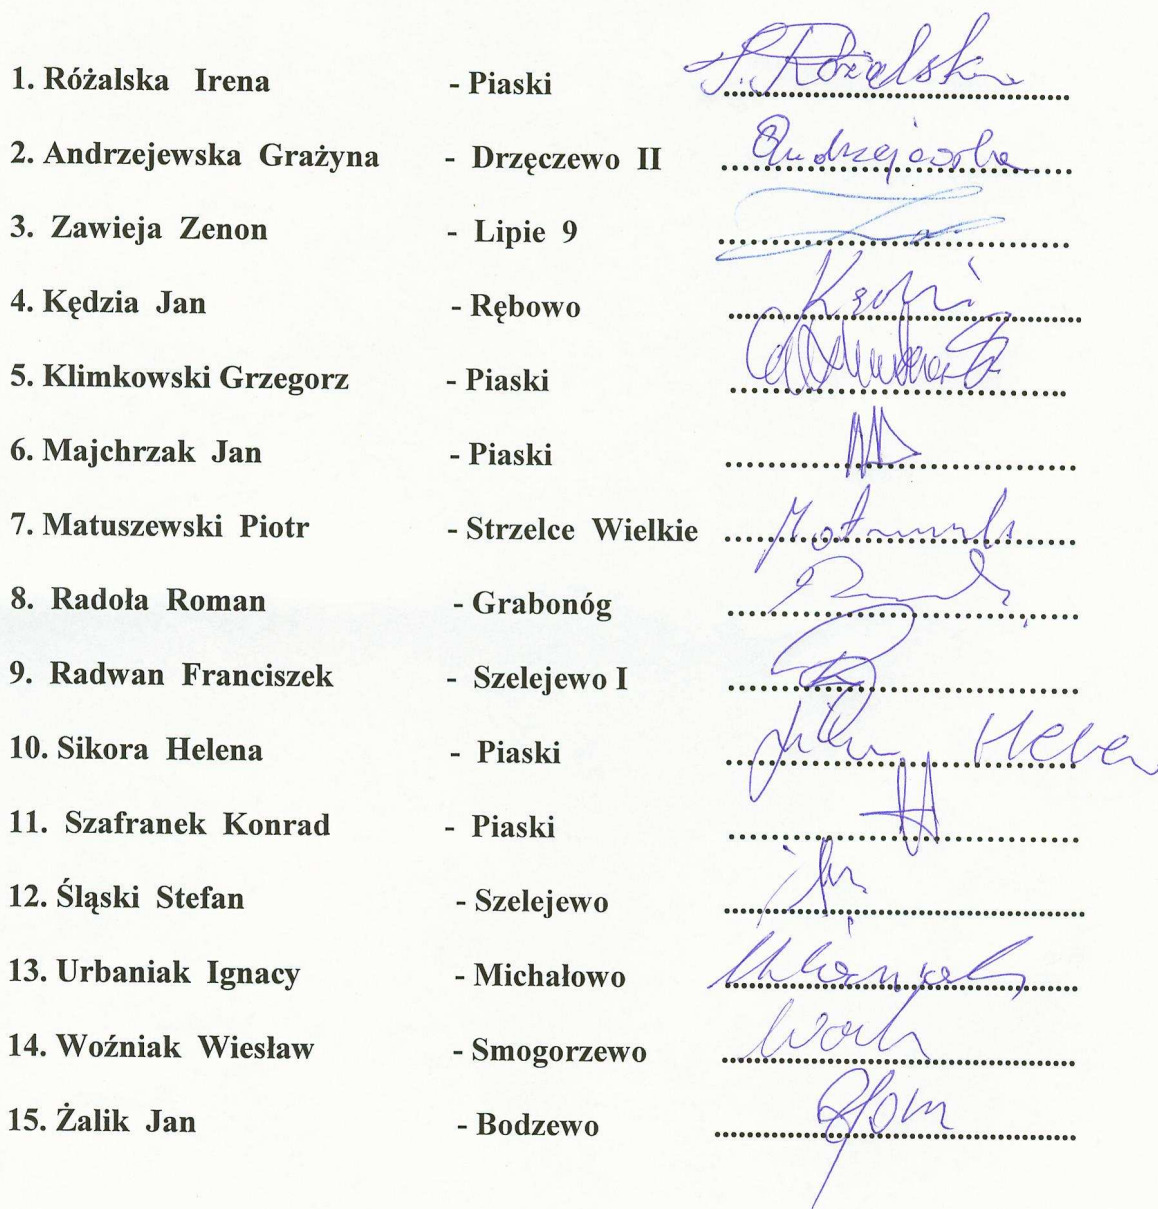 1. Różalska Irena - Piaski Różalska
2. Andrzejewska Grażyna - Drzęczewo II Andrzejewska
3. Zawieja Zenon - Lipie 9
4. Kędzia Jan - Rębowo Kędzia
5. Klimkowski Grzegorz - Piaski
6. Majchrzak Jan - Piaski
7. Matuszewski Piotr - Strzelce Wielkie
8. Radoła Roman - Grabonóg
9. Radwan Franciszek - Szelejewo I
10. Sikora Helena - Piaski
11. Szafranek Konrad - Piaski
12. Śląski Stefan - Szelejewo
13. Urbaniak Ignacy - Michałowo Urbaniak
14. Woźniak Wiesław - Smogorzewo
15. Żalik Jan - Bodzewo